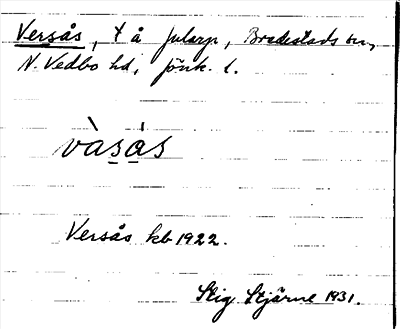 Versås, t å Jularp, Bredestads sn,
N. Vedbo hd, Jönk. l.
vàsás
Versås kb 1922.
Stig Stjärne 1931.